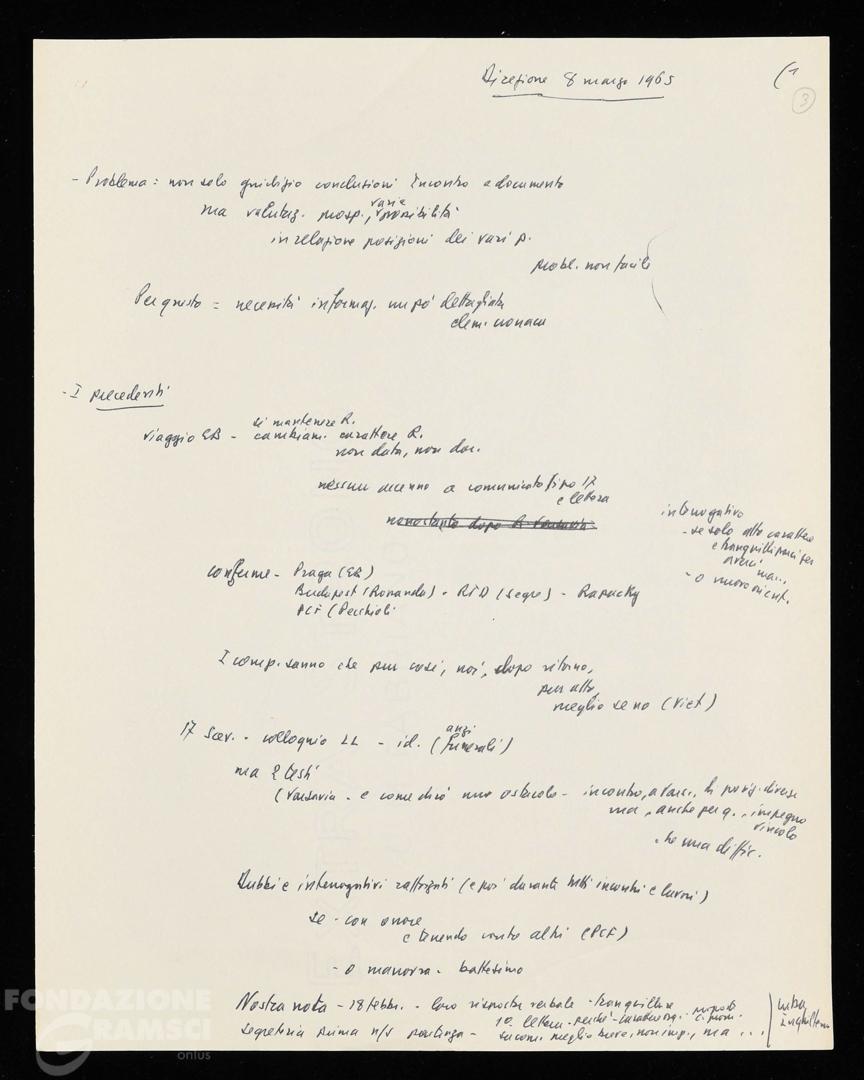 Direzione 8 marzo 1965
(1
3
- Problema = non solo giudizio conclusioni Incontro e documento
varie
ma valutaz. prosp., possibilità
in relazione posizioni dei vari p.
probl. non facili
Per questo = necessità informaz. un pò dettagliata
elem. cronaca
- I precedenti
si mantenere R.
viaggio EB - cambiam. carattere R.
non data, non doc.
nessun accenno a comunicato tipo 17
e lettera
nonostante dopo
interrogativo
- se solo altro carattere
e tranquillizzarci per
averci
ma..
- o nuovo orient.
conferme - Praga (EB)
Budapest (Romando) - RTD (Segre) - Rapacky
PCF (Pecchioli
I comp. sanno che pur così, noi, dopo ritorno,
pur altr,
meglio se no (Viet)
anzi
17 - colloquio LL - id. (funerali)
ma 2 testi
(Varsavia - e come dirò uno ostacolo - incontro, a Vars., di posiz. diverse
ma, anche per q., impegno
vincolo
che una diffic.
Dubbi e interrogativi rafforzati (e poi durante tutti incontri e lavori)
se - con onore
e tenendo conto altri (PCF)
- o manovra - battesimo
Nostra nota - 18 febbr. - loro risposta verbale - tranquillizz
Segreteria prima n/s partenza - 1o. lettera - perché - carattere
su com. meglio breve, non imp., ma ...
FONDAZIONE
GRAMSCI
onlus